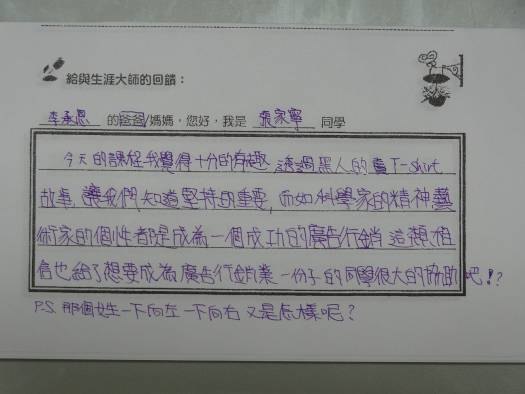 給與生涯大師的回饋：
李承恩 的爸爸/媽媽，您好，我是 張家寧 同學
今天的課程我覺得十分的有趣 透過黑人的賣T-shirt
故事,讓我們知道堅持的重要,而如科學家的精神藝
術家的個性都是成為一個成功的廣告行銷 這類,相
信也給了想要成為廣告行銷業一份子的同學很大的協助吧!?
P.S. 那個女生一下向左一下向右又是怎樣呢?